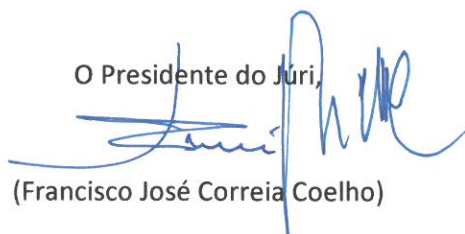 O Presidente do Júri,
(Francisco José Correia Coelho)